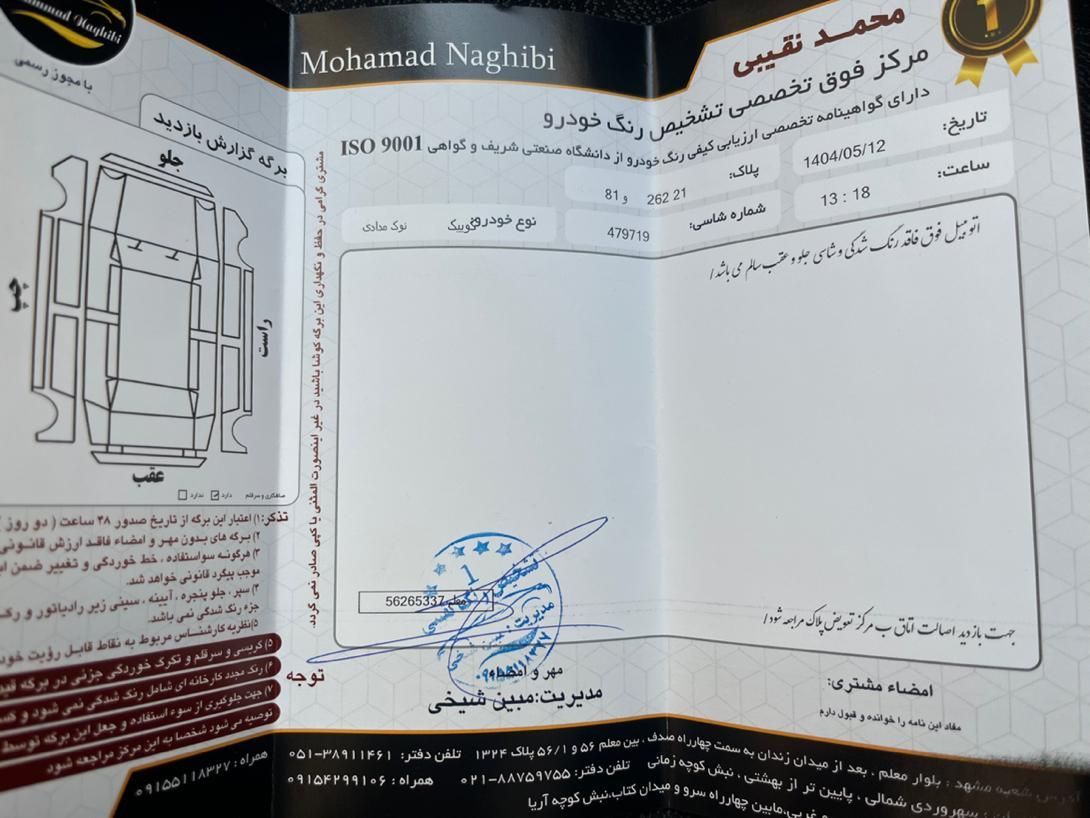 Mohamad Naghibi
محمد نقیبی
مرکز فوق تخصصی تشخیص رنگ خودرو
دارای گواهینامه تخصصی ارزیابی کیفی رنگ خودرو از دانشگاه صنعتی شریف و گواهی ISO 9001
1
Naghibi
با مجوز رسمی
تاریخ: 1404/05/12
ساعت: 13 : 18
پلاک: 262 21 و 81
شماره شاسی: 479719
نوع خودرو: کوییک نوک مدادی
برگه گزارش بازدید
جلو
چپ
راست
عقب
صافکاری و سرقلم دارد ندارد
مشتری گرامی در حفظ و نگهداری این برگه کوشا باشید در غیر اینصورت المثنی یا کپی صادر نمی گردد.
اتومبیل فوق فاقد رنگ شدگی و شاسی جلو و عقب سالم می باشد/
جهت بازدید اصالت اتاق ب مرکز تعویض پلاک مراجعه شود/
56265337
مهر و امضاء
مدیریت:مبین شیخی
امضاء مشتری:
مفاد این نامه را خوانده و قبول دارم
تذکر: ۱) اعتبار این برگه از تاریخ صدور ۴۸ ساعت ( دو روز )
۲) برگه های بدون مهر و امضاء فاقد ارزش قانونی
۳) هرگونه سواستفاده ، خط خوردگی و تغییر ضمن
موجب پیگرد قانونی خواهد شد.
۴) سپر ، جلو پنجره ، آیینه ، سینی زیر رادیاتور و
جزء رنگ شدگی نمی باشد.
۵)نظریه کارشناس مربوط به نقاط قابل رؤیت
توجه
۵) گریسی و سرقلم و تکرگ خوردگی جزئی در برگه
۶) رنگ مجدد کارخانه ای شامل رنگ شدگی نمی شود و
۷) جهت جلوگیری از سوء استفاده و جعل این برگه توسط
توصیه می شود شخصا به این مرکز مراجعه شود
آدرس شعبه مشهد : بلوار معلم ، بعد از میدان زندان به سمت چهارراه صدف ، بین معلم ۵۶ و ۵۶/۱ پلاک ۱۳۲۴ تلفن دفتر: ۳۸۹۱۱۴۶۱-۰۵۱
سهروردی شمالی ، پایین تر از بهشتی ، نبش کوچه زمانی تلفن دفتر: ۸۸۷۵۹۷۵۵-۰۲۱ همراه : ۰۹۱۵۴۲۹۹۱۰۶
غربی،مابین چهارراه سرو و میدان کتاب،نبش کوچه آریا
همراه : ۰۹۱۵۵۱۱۸۳۲۷